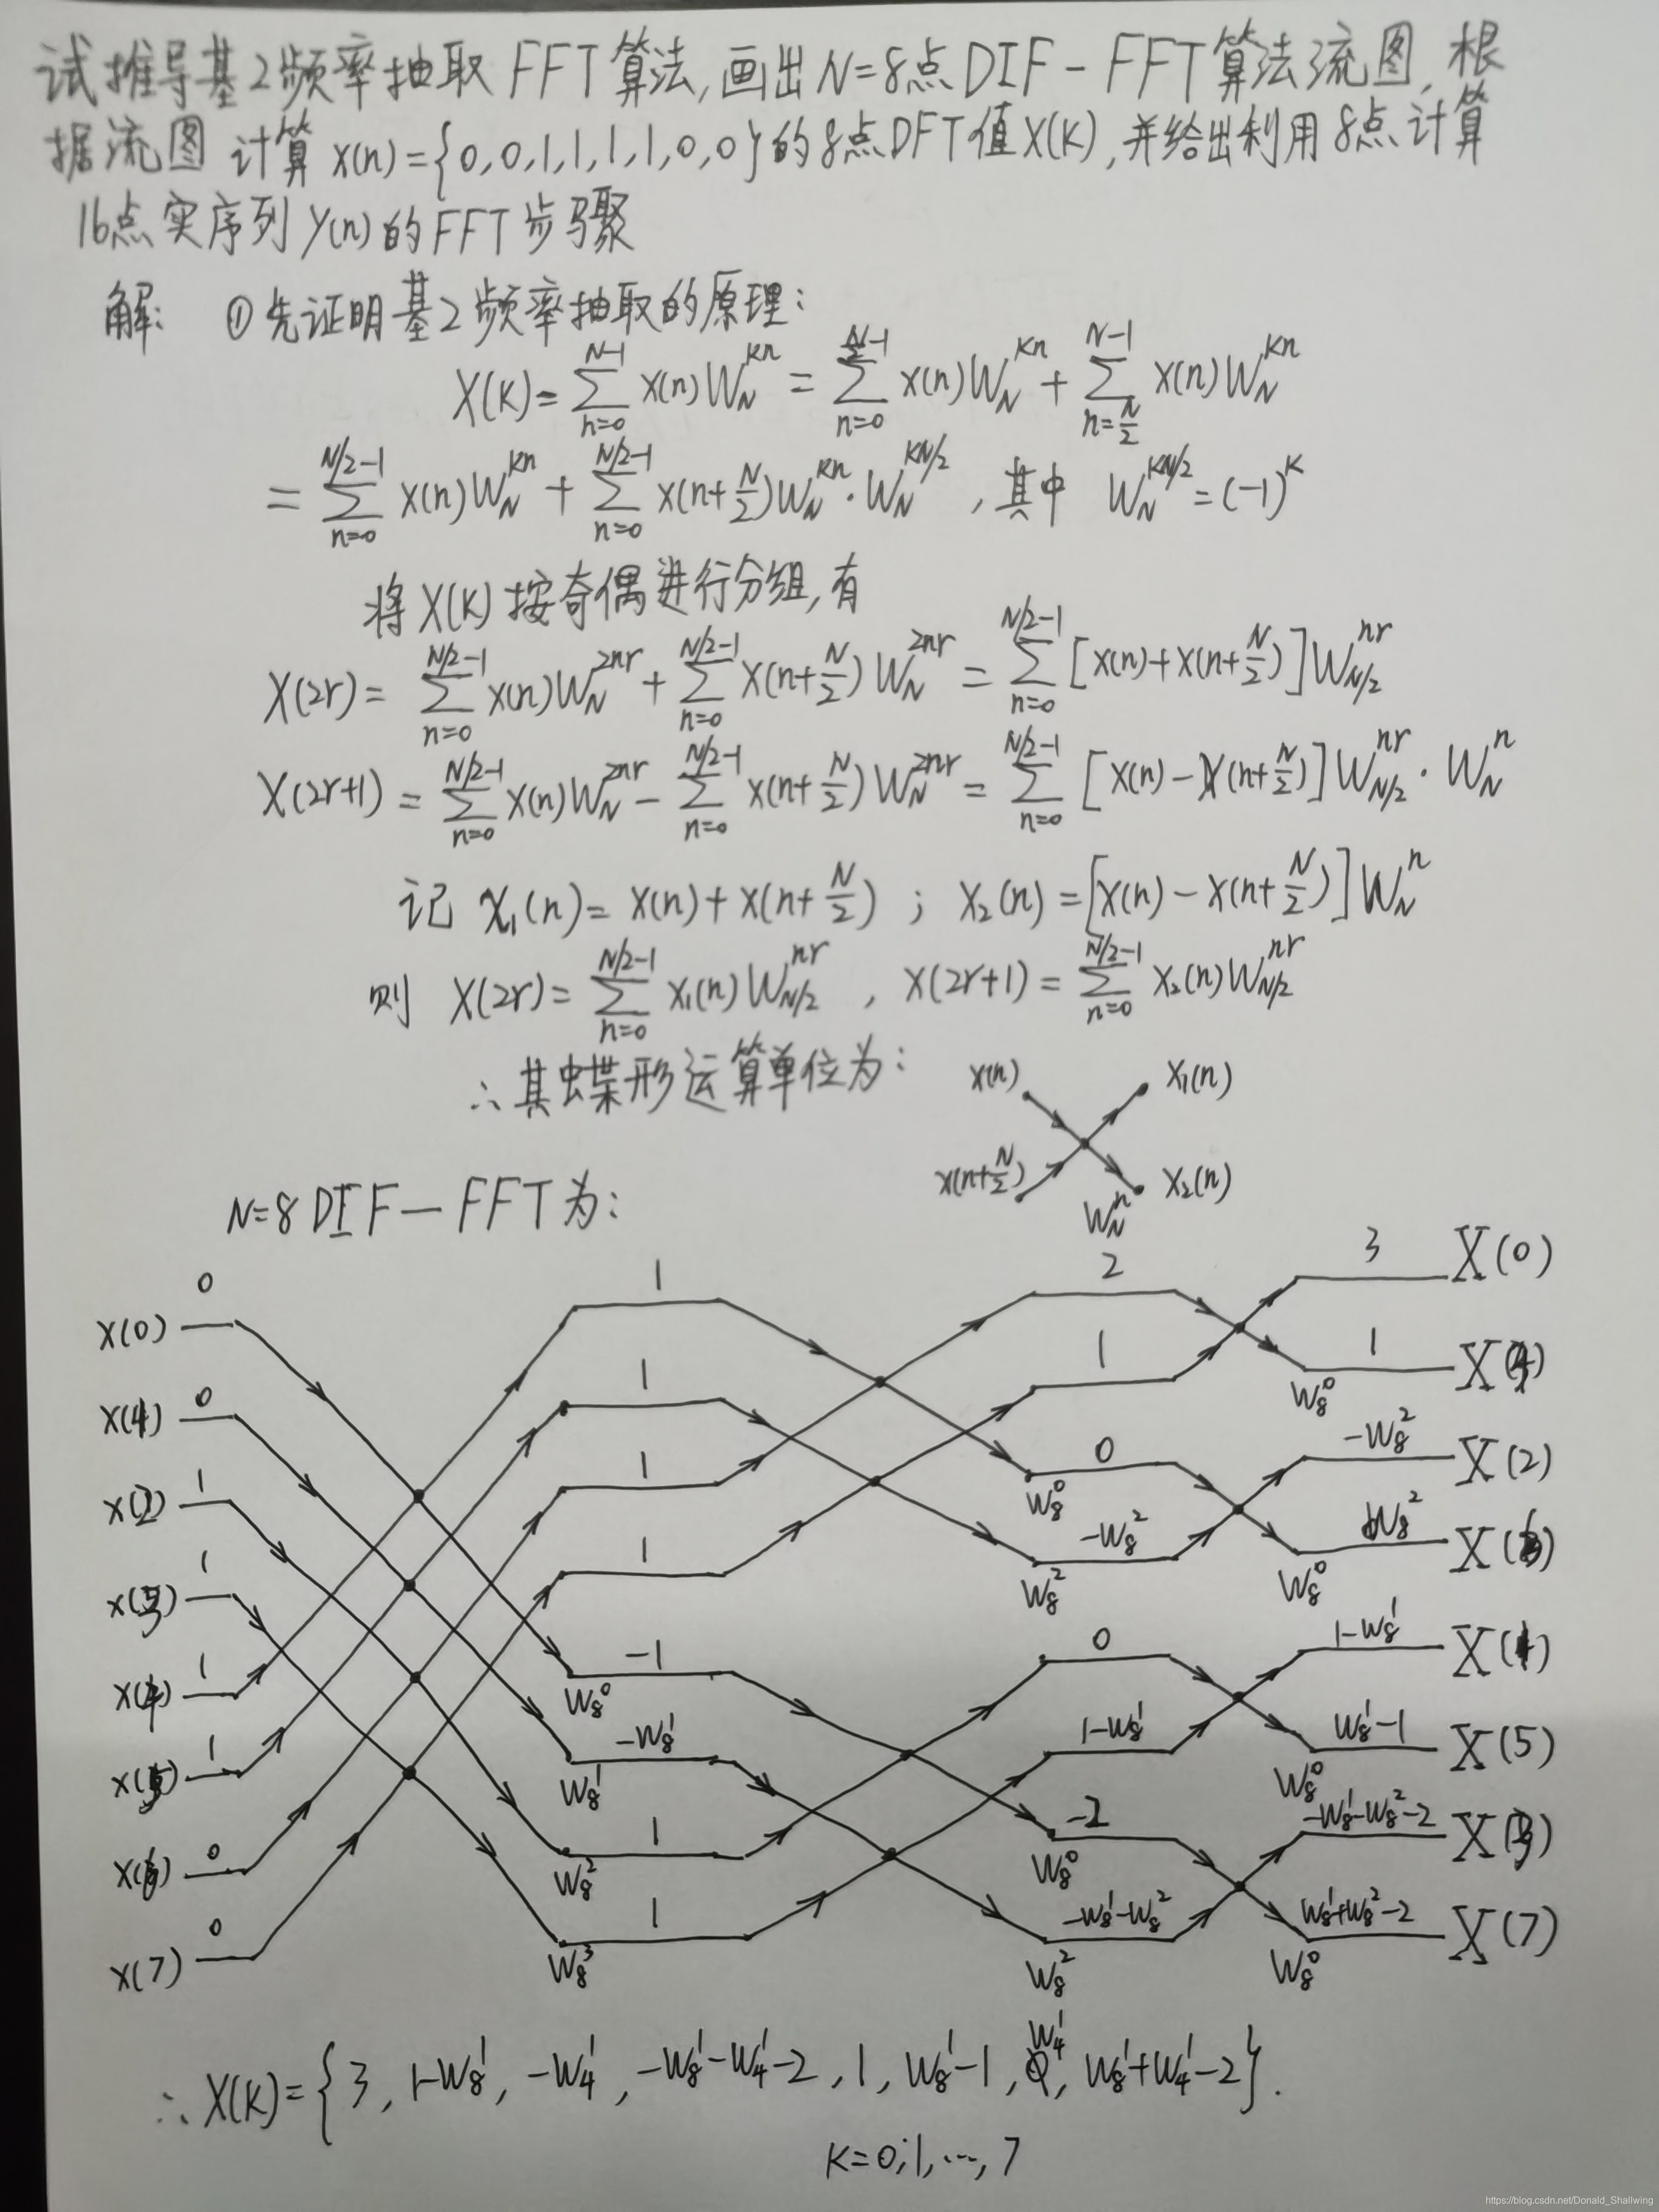 试推导基2频率抽取FFT算法,画出N=8点DIF-FFT算法流图,根
据流图 计算 x(n)={0,0,1,1,1,1,0,0}的8点DFT值X(K),并给出利用8点计算
16点实序列y(n)的FFT步骤
解: ①先证明基2频率抽取的原理:
X(K)=∑_{n=0}^{N-1} x(n)W_N^{kn} = ∑_{n=0}^{N/2-1} x(n)W_N^{kn} + ∑_{n=N/2}^{N-1} x(n)W_N^{kn}
= ∑_{n=0}^{N/2-1} x(n)W_N^{kn} + ∑_{n=0}^{N/2-1} x(n+N/2)W_N^{kn}·W_N^{kN/2} ,其中 W_N^{kN/2}=(-1)^k
将X(K)按奇偶进行分组,有
X(2r)= ∑_{n=0}^{N/2-1} x(n)W_N^{2nr} + ∑_{n=0}^{N/2-1} x(n+N/2)W_N^{2nr} = ∑_{n=0}^{N/2-1} [x(n)+x(n+N/2)]W_{N/2}^{nr}
X(2r+1) = ∑_{n=0}^{N/2-1} x(n)W_N^{2nr} - ∑_{n=0}^{N/2-1} x(n+N/2)W_N^{2nr} = ∑_{n=0}^{N/2-1} [x(n)-x(n+N/2)]W_{N/2}^{nr}·W_N^n
记 x₁(n)= x(n)+x(n+N/2) ; x₂(n)=[x(n)-x(n+N/2)]W_N^n
则 X(2r)= ∑_{n=0}^{N/2-1} x₁(n)W_{N/2}^{nr} , X(2r+1)= ∑_{n=0}^{N/2-1} x₂(n)W_{N/2}^{nr}
∴其蝶形运算单位为:
x(n) x₁(n)
x(n+N/2) W_N^n x₂(n)
N=8 DIF-FFT为:
x(0) 0 1 2 3 X(0)
x(1) 0 1 1 W_8^0 1 X(4)
x(2) 1 1 W_8^0 0 -W_8^2 X(2)
x(3) 1 1 W_8^2 -W_8^2 W_8^0 W_8^2 X(6)
x(4) 1 W_8^0 -1 0 1-W_8^1 X(1)
x(5) 1 W_8^1 -W_8^1 1-W_8^1 W_8^0 W_8^1-1 X(5)
x(6) 0 W_8^2 1 W_8^0 -2 -W_8^1-W_8^2-2 X(3)
x(7) 0 W_8^3 1 W_8^2 -W_8^1-W_8^2 W_8^0 W_8^1+W_8^2-2 X(7)
∴ X(K)={3, 1-W_8^1, -W_4^1, -W_8^1-W_4^1-2, 1, W_8^1-1, W_4^1, W_8^1+W_4^1-2}.
K=0,1,…,7
https://blog.csdn.net/Donald_Shallwing